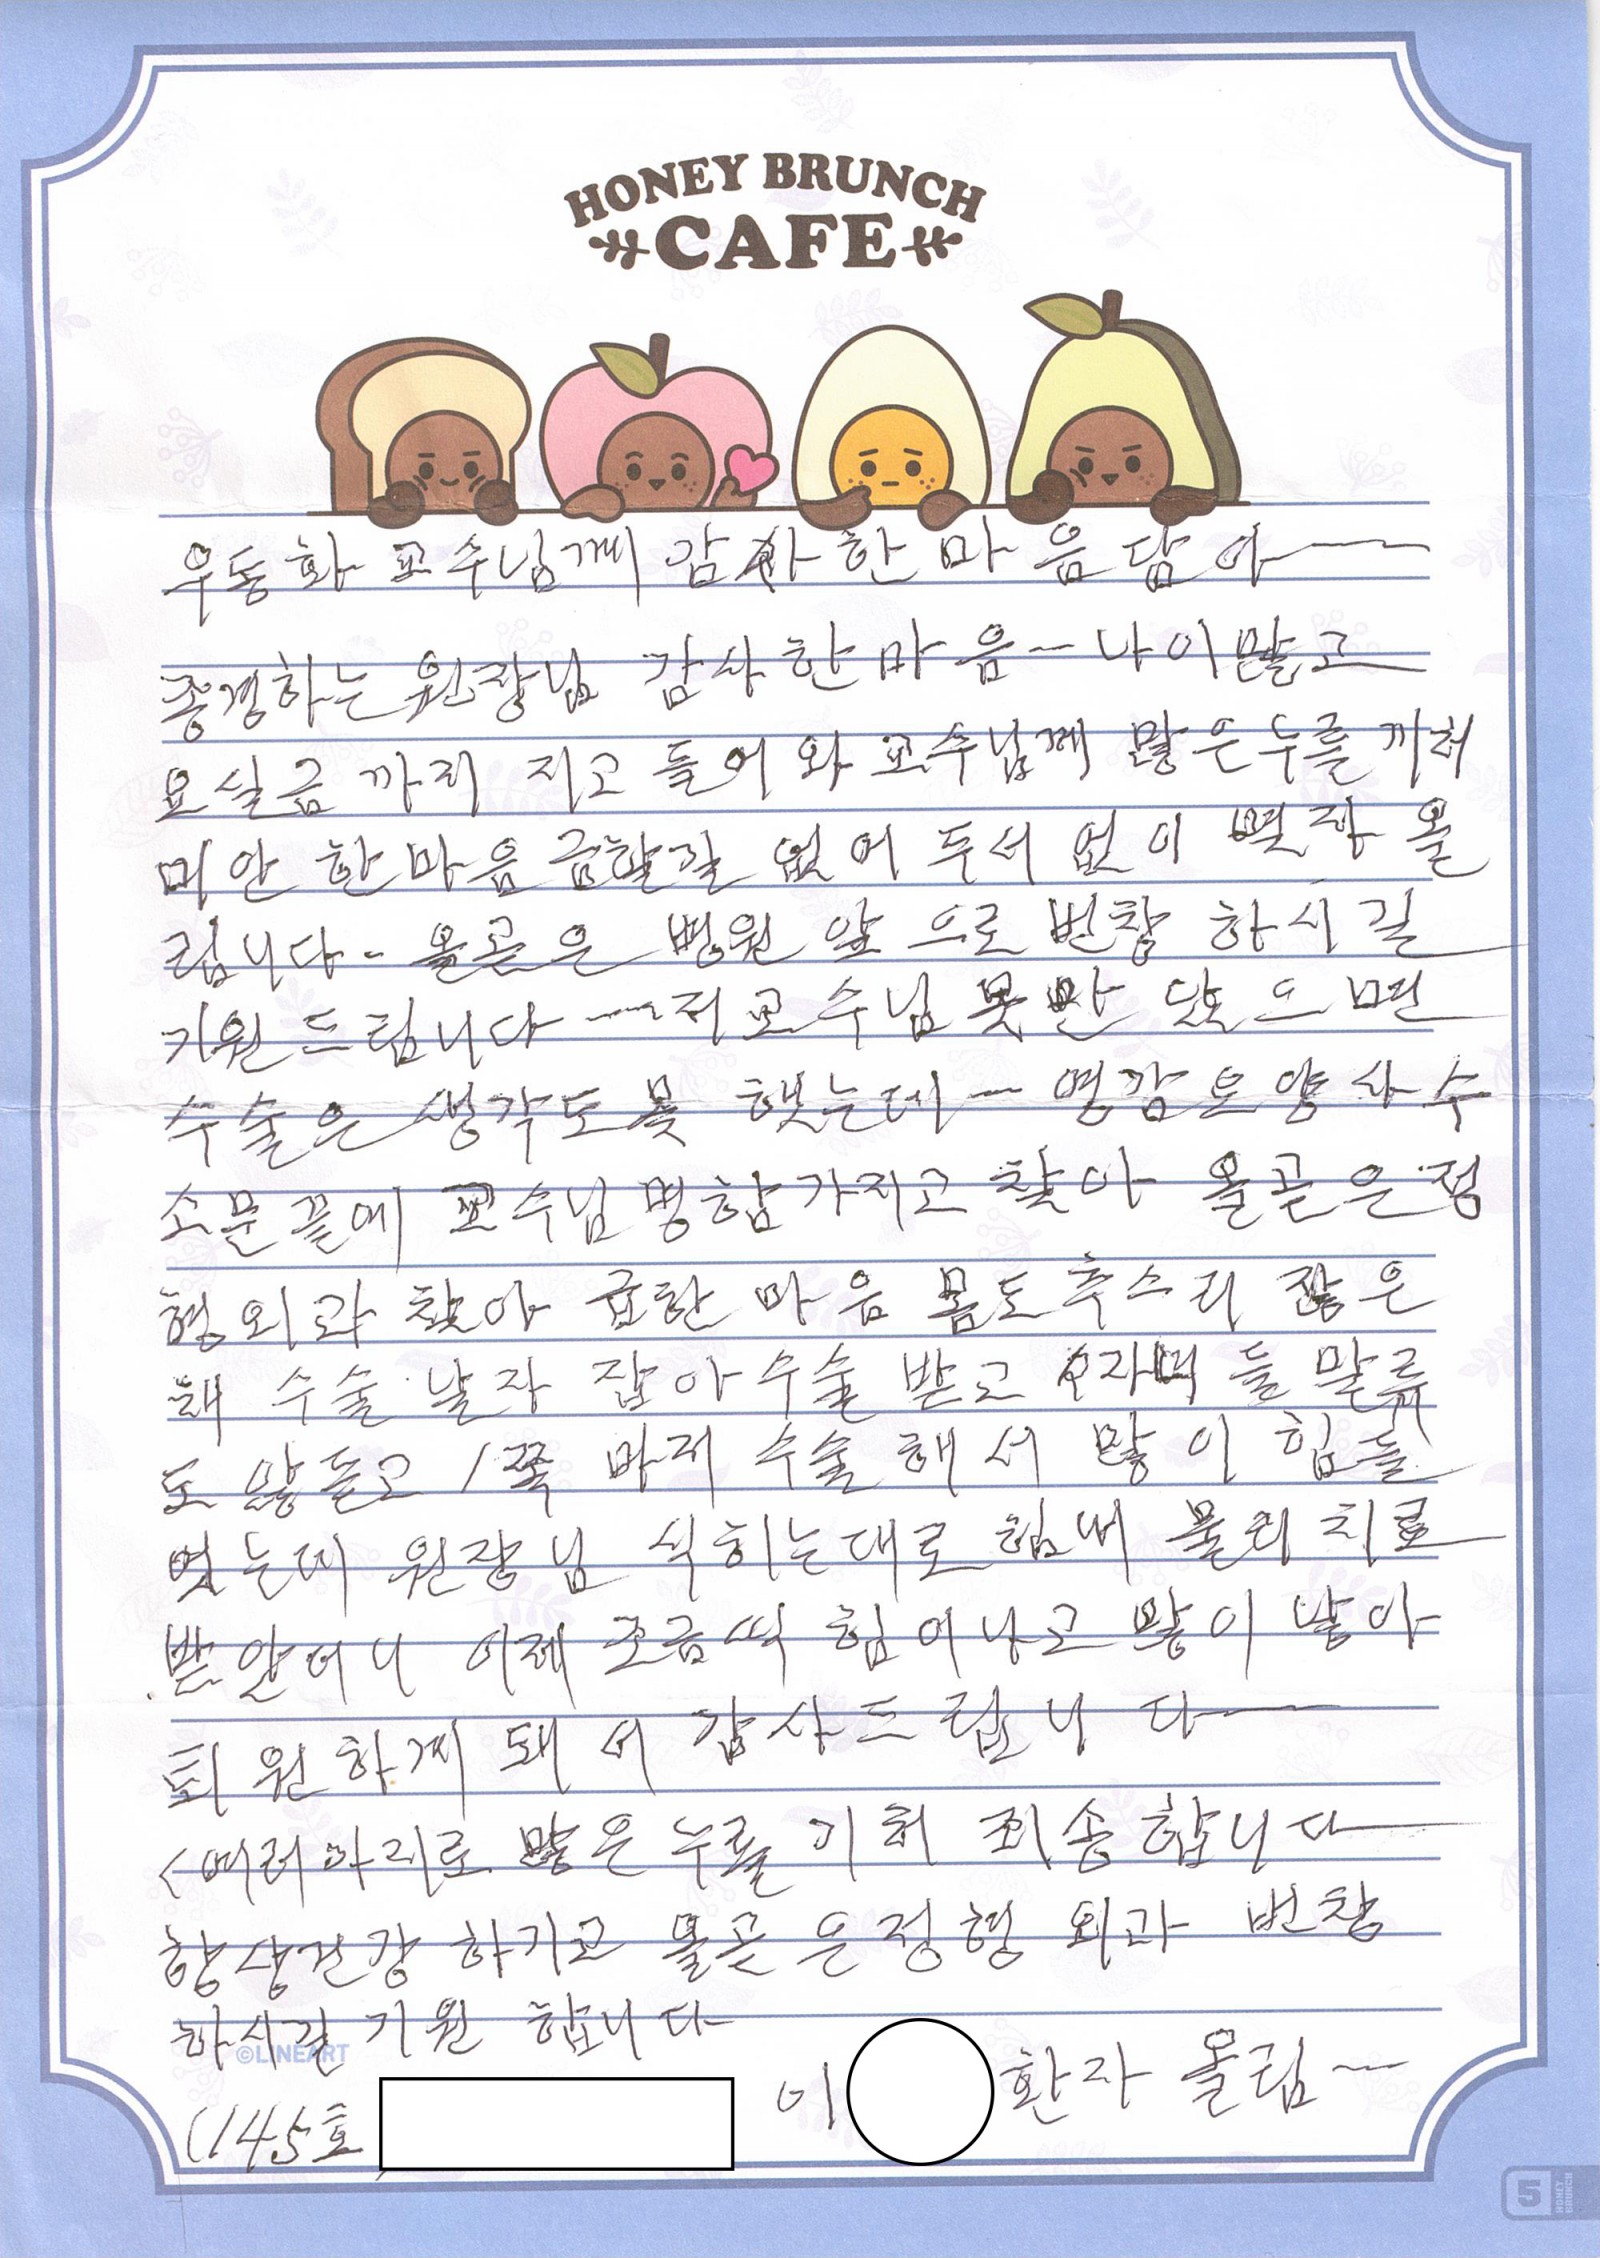 HONEY BRUNCH
CAFE
우동화 교수님께 감사한 마음 담아
존경하는 원장님 감사한 마음~ 나이 많고
요실금 까지 지고 들어와 교수님께 많은 누를 끼쳐
미안한 마음 금할길 없어 두서 없이 몇자 올
립니다- 올곧은 병원 앞으로 번창 하시길
기원드립니다 저 교수님 못 만 났으면
수술은 생각도 못 했는데~ 영감 요양사 수
소문 끝에 교수님 명함 가지고 찾아 올곧은 정
형외과 찾아 급한 마음 몸도 추스리 잖은
해 수술 날자 잡아 수술 받고 들 말류
도 않듣고 1쪽 마저 수술해서 많이 힘들
었는데 원장님 식히는대로 힘내 물리치료
받았더니 이제 조금씩 힘이나고 많이 낳아
퇴원하게 돼서 감사드립니다
<여러가지로 많은 누를 기쳐 죄송합니다
항상건강 하기고 올곧은정형외과 번창
하시길 기원 합니다
©LINEART
이 환자 올림~
(145호
5
HONEY BRUNCH